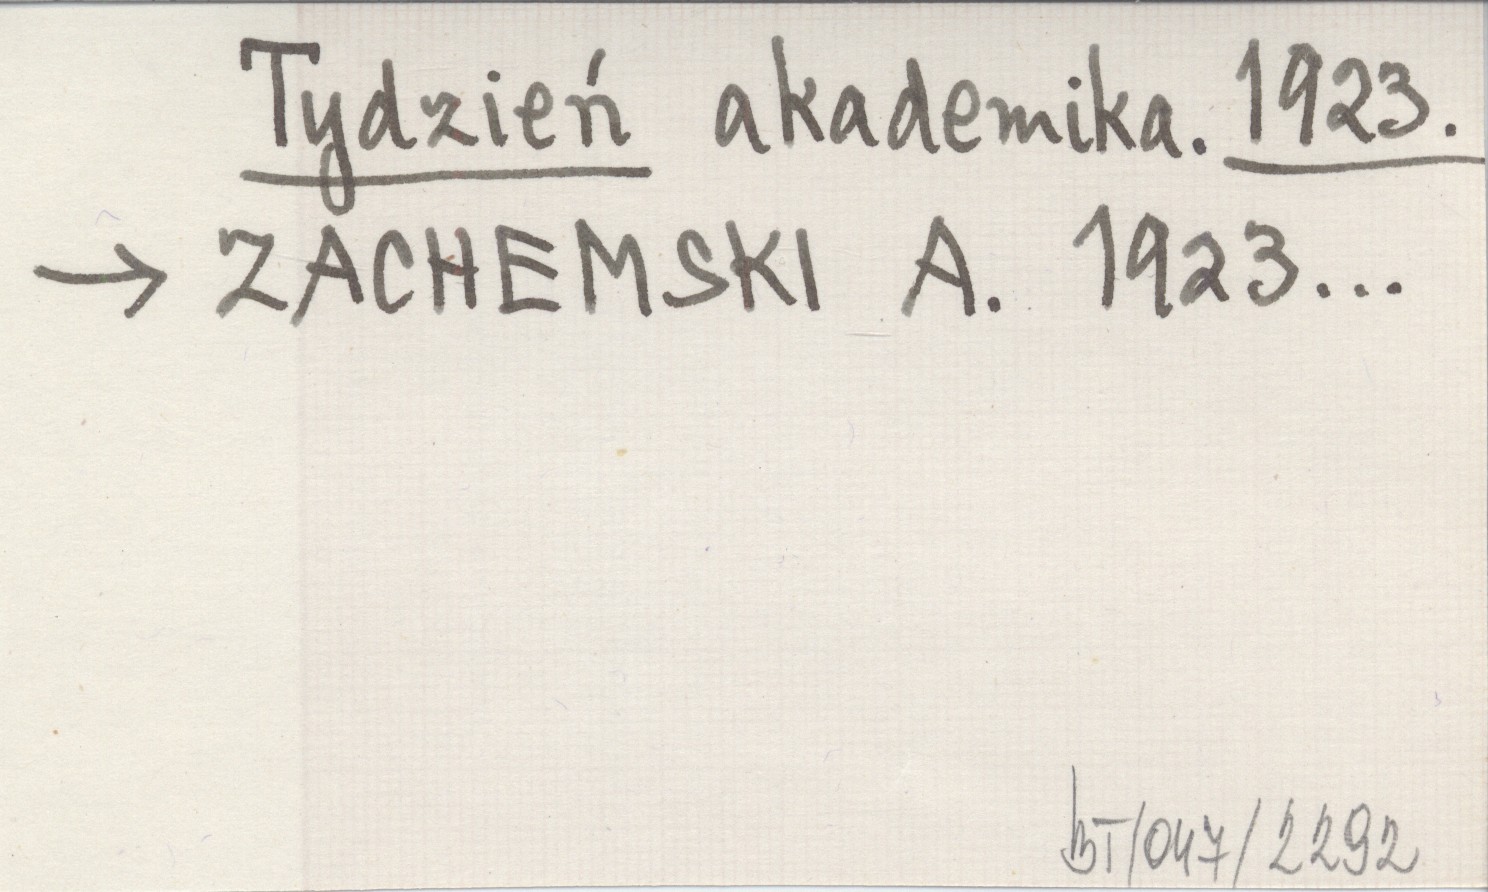 Tydzień akademika. 1923.
→ ZACHEMSKI A. 1923...
BT/047/2292